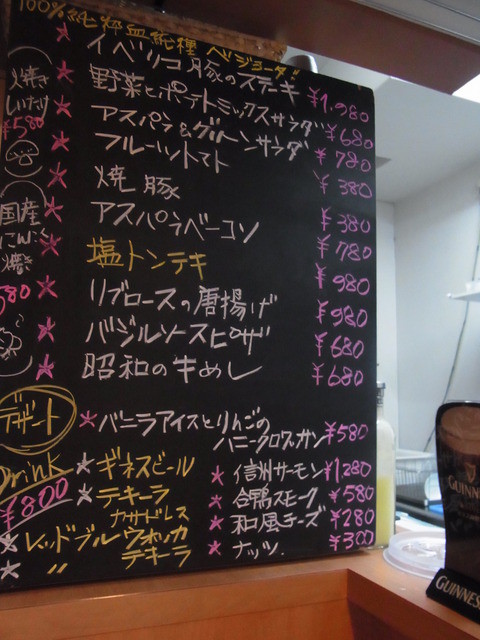 100%純粋血統種 ベジョータ
イベリコ豚のステーキ ¥1,980
野菜とポテトミックスサラダ ¥680
アスパラ&グリーンサラダ ¥780
フルーツトマト ¥380
焼豚 ¥380
アスパラベーコン ¥780
塩トンテキ ¥980
リブロースの唐揚げ ¥980
バジルソースピザ ¥680
昭和の牛めし ¥680
焼き
しいたけ
¥580
国産
にんにく
焼き
580
デザート
バニラアイスとりんごの
ハニークロワッサン ¥580
Drink
¥800
ギネスビール
テキーラ
カサドレス
レッドブルウォッカ
〃 テキーラ
信州サーモン ¥1,280
合鴨スモーク ¥580
和風チーズ ¥280
ナッツ. ¥300
GUINNESS
GUINNESS